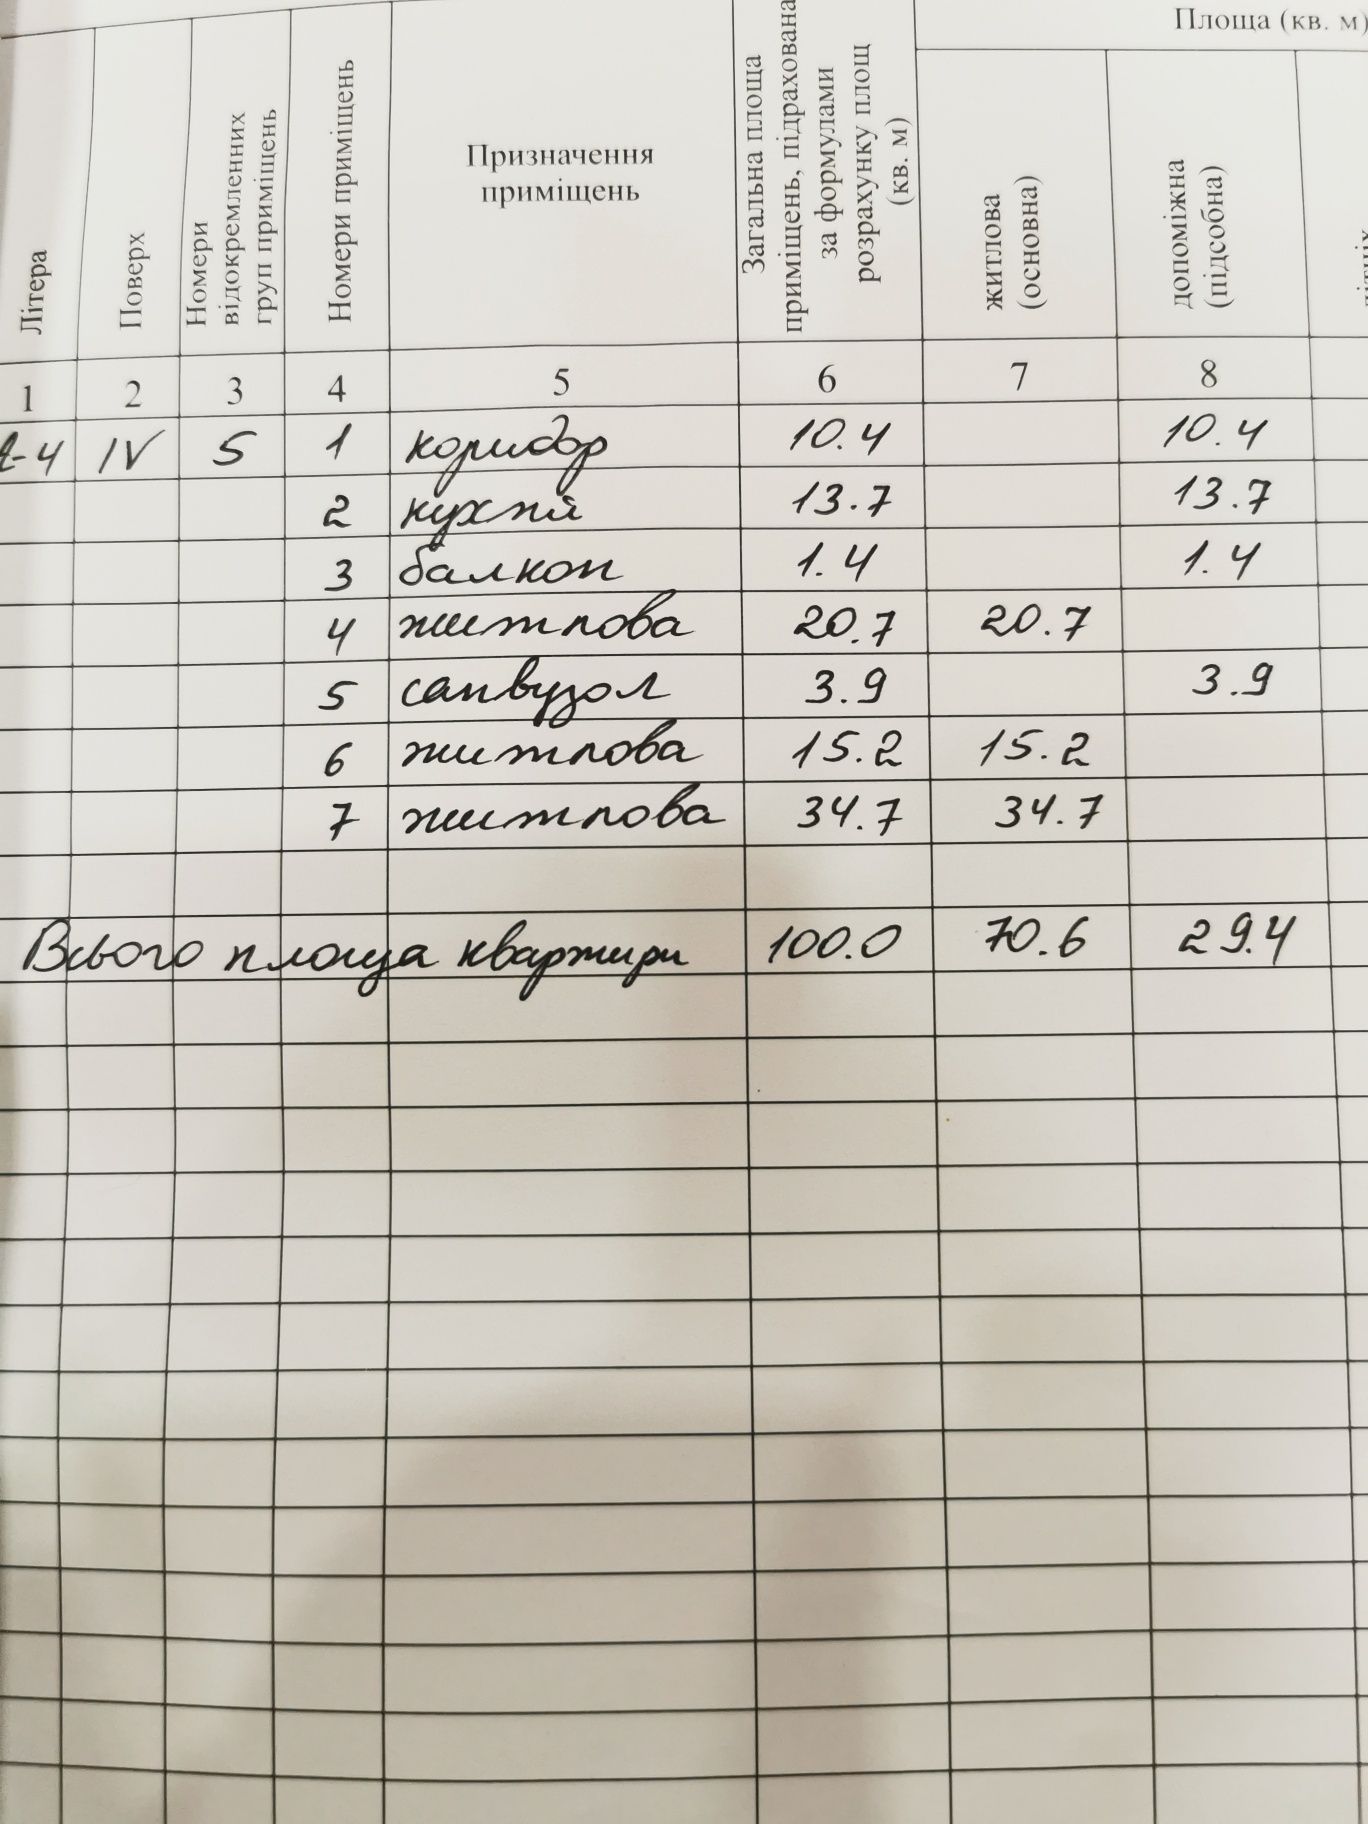 Площа (кв. м)
Літера
Поверх
Номери
відокремленних
груп приміщень
Номери приміщень
Призначення
приміщень
Загальна площа
приміщень, підрахована
за формулами
розрахунку площ
(кв. м)
житлова
(основна)
допоміжна
(підсобна)
1 2 3 4 5 6 7 8
IV 5 1 коридор 10.4 10.4
2 кухня 13.7 13.7
3 балкон 1.4 1.4
4 житлова 20.7 20.7
5 санвузол 3.9 3.9
6 житлова 15.2 15.2
7 житлова 34.7 34.7
Всього площа квартири 100.0 70.6 29.4